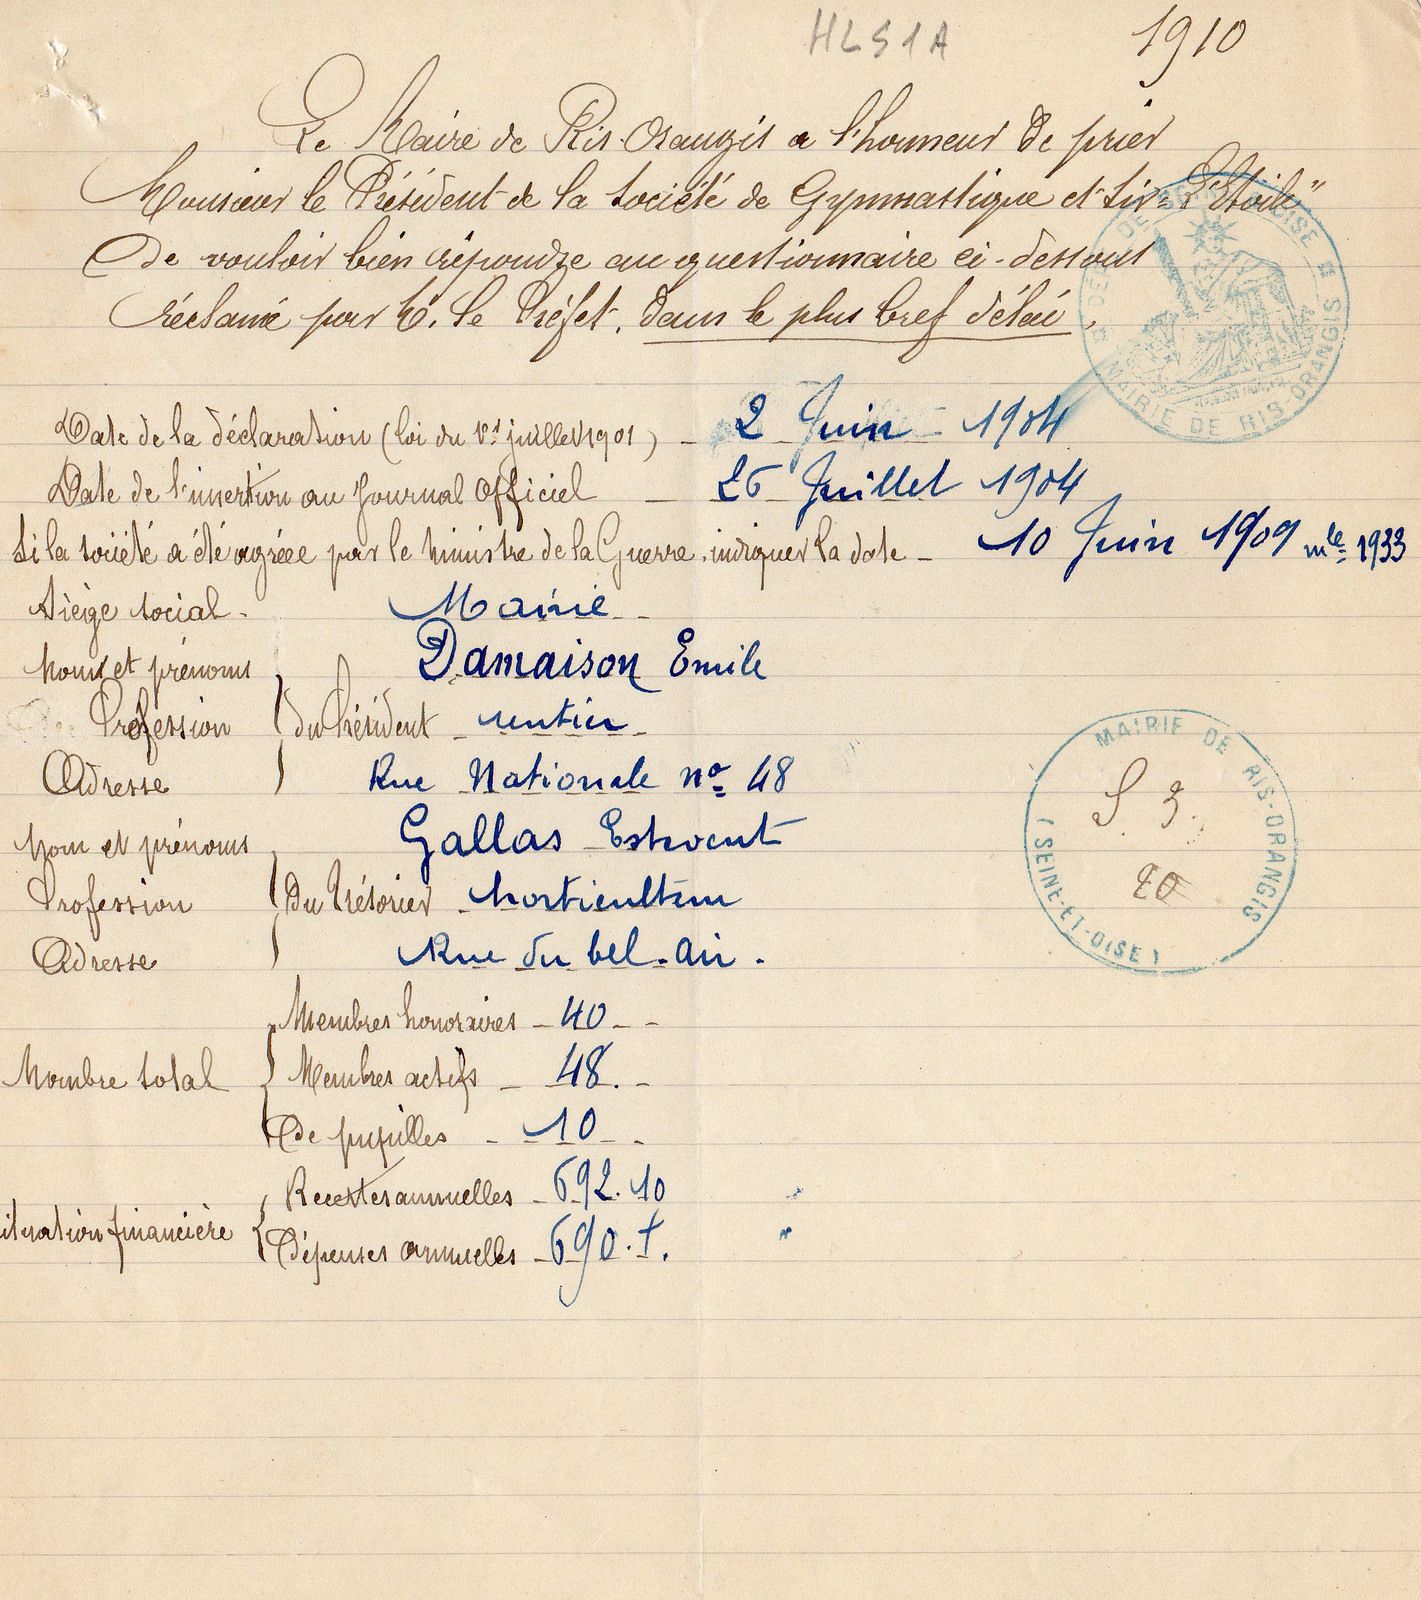 HLS1A 1910
Le Maire de Ris-Orangis a l'honneur de prier
Monsieur le Président de la Société de Gymnastique et tir "L'Etoile"
de vouloir bien répondre au questionnaire ci-dessous
réclamé par M. le Préfet, dans le plus bref délai.
Date de la déclaration (loi du 1er juillet 1901) - 2 Juin - 1904
Date de l'insertion au Journal Officiel - 26 Juillet 1904
Si la société a été agréée par le Ministre de la Guerre, indiquer la date - 10 Juin 1909 mle 1933
Siège social - Mairie
Noms et prénoms Damaison Emile
Profession du Président - rentier
Adresse Rue Nationale no 48
MAIRIE DE RIS-ORANGIS
(SEINE-ET-OISE)
Nom et prénoms Gallas
Profession du Trésorier horticulteur
Adresse Rue du bel-air.
Membres honoraires - 40 -
Nombre total Membres actifs - 48. -
de pupilles - 10 -
Recettes annuelles - 692.10
ituation financière Dépenses annuelles - 690.
MAIRIE DE RIS-ORANGIS